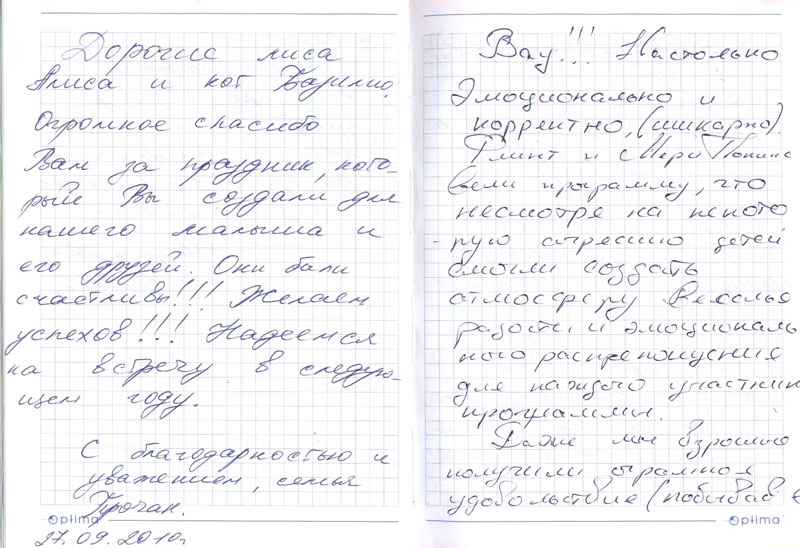 Дорогие лиса
Алиса и кот Базилио.
Огромное спасибо
Вам за праздник, кото-
рый Вы создали для
нашего малыша и
его друзей. Они были
счастливы!!! Желаем
успехов!!! Надеемся
на встречу в следую-
щем году.
С благодарностью и
уважением, семья
27.09.2010г
Optima
Вау!!! Настолько
эмоционально и
корректно, (шикарно).
Флинт и Мери Попинс
вели программу, что
несмотря на некото
- рую агрессию детей
смогли создать
атмосферу веселья
радости и эмоциональ
ного
для каждого участник
программы.
Даже мы взрослые
получили огромное
удовольствие (побывав в
Optima